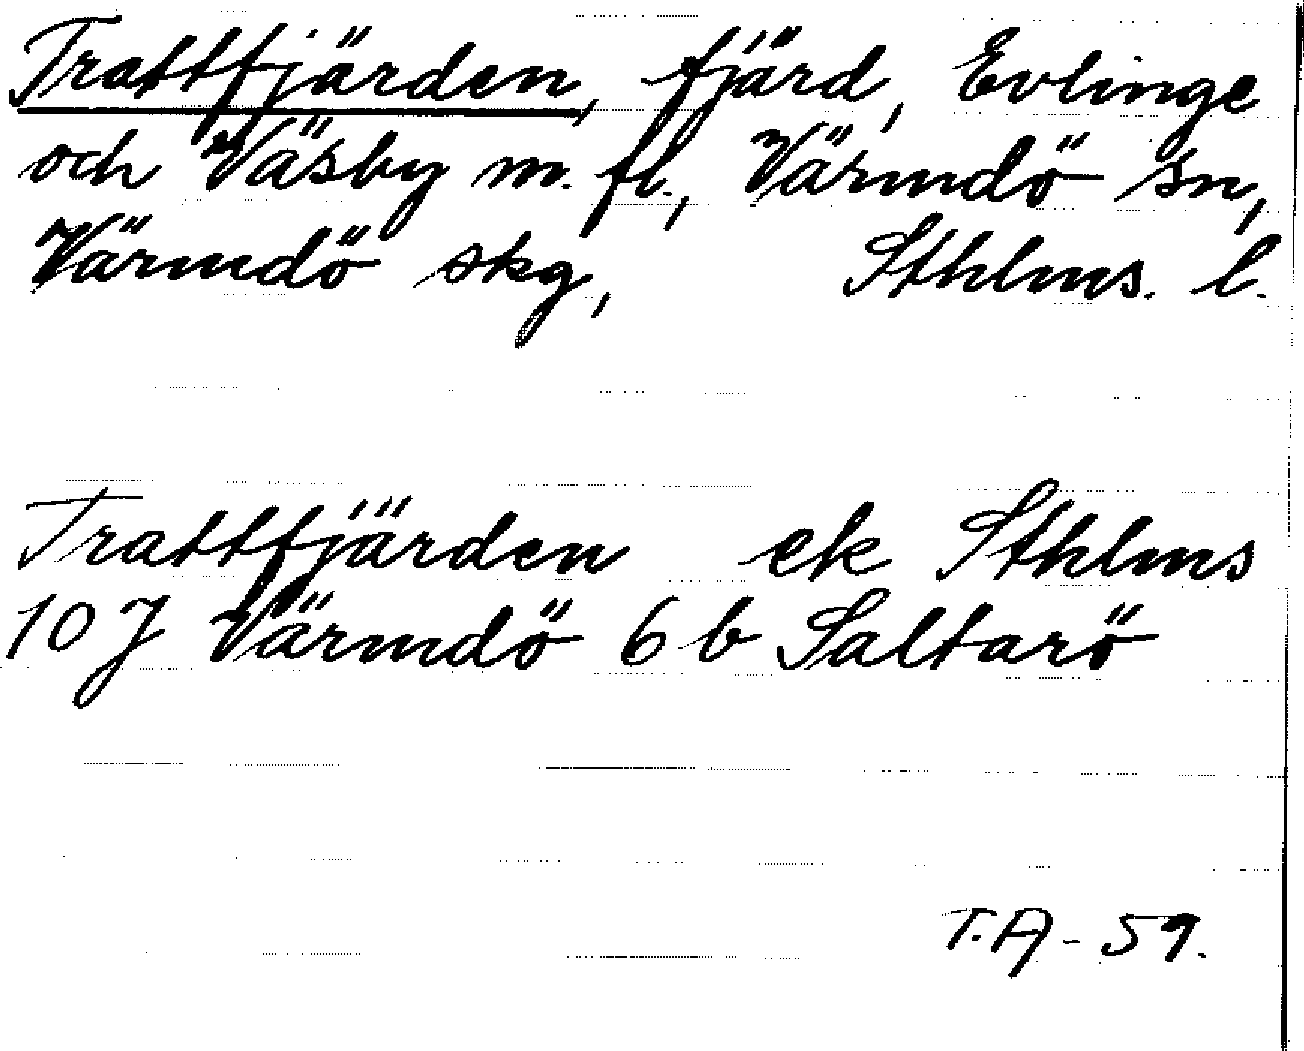 Trattfjärden, fjärd, Evlinge
och Väsby m. fl., Värmdö sn,
Värmdö skg, Sthlms. l.
Trattfjärden ek Sthlms
10 J Värmdö 6 b Saltarö
T.A - 59.